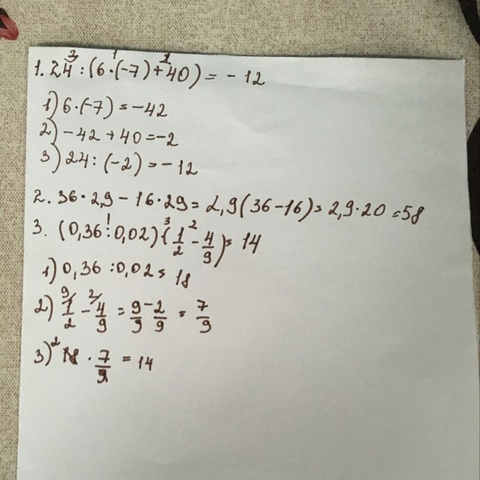 1. 24 : (6·(-7)+40) = -12
1) 6·(-7) = -42
2) -42 + 40 = -2
3) 24 : (-2) = -12
2. 36·2,9 - 16·29 = 2,9(36-16) = 2,9·20 = 58
3. (0,36 : 0,02)·(1/2 - 4/9) = 14
1) 0,36 : 0,02 = 18
2) 1/2 - 4/9 = 9-2/9 = 7/9
3) 18 · 7/9 = 14